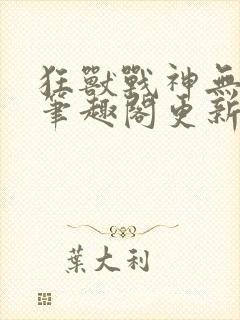 狂獸戰神無
筆趣閣更新
葉大利